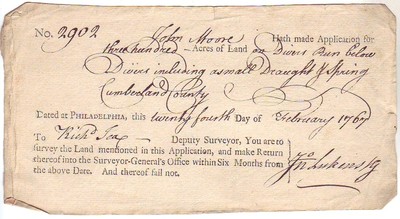 No. 2902 John Moore Hath made Application for
three hundred Acres of Land on Divers Run below
Divers including a small Draught & Spring
Cumberland County
Dated at PHILADELPHIA, this twenty fourth Day of February 1767
To Richd Deputy Surveyor, You are to
survey the Land mentioned in this Application, and make Return
thereof into the Surveyor-General's Office within Six Months from
the above Date. And thereof fail not.
Jno Lukens SG